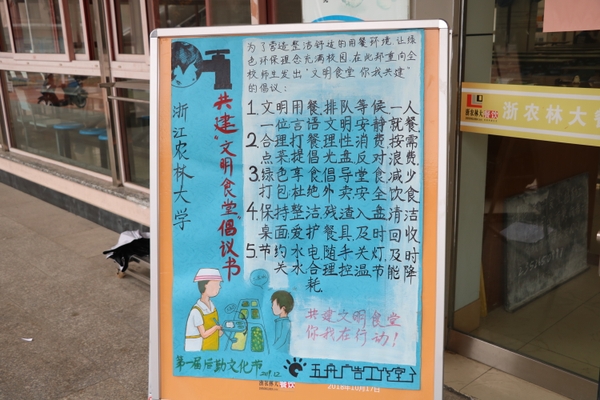 为了营造整洁舒适的用餐环境,让绿
色环保理念充满校园,在此郑重向全
校师生发出“文明食堂 你我共建”
的倡议:
浙江农林大学
共建“文明食堂”倡议书
1.文明用餐,排队等候,一人
一位,言语文明,安静就餐
2.合理打餐,理性消费,按需
点菜,提倡光盘,反对浪费
3.绿色享食,倡导堂食,减少
打包,杜绝外卖,安全饮食
4.保持整洁,残渣入盘,清洁
桌面,爱护餐具,及时回收
5.节约水电,随手关灯,及时
关水,合理控温,节能降
耗.
共建文明食堂
你我在行动!
第一届后勤文化节
五舟广告工作室
浙农林大餐饮
2018年10月17日
浙农林大餐